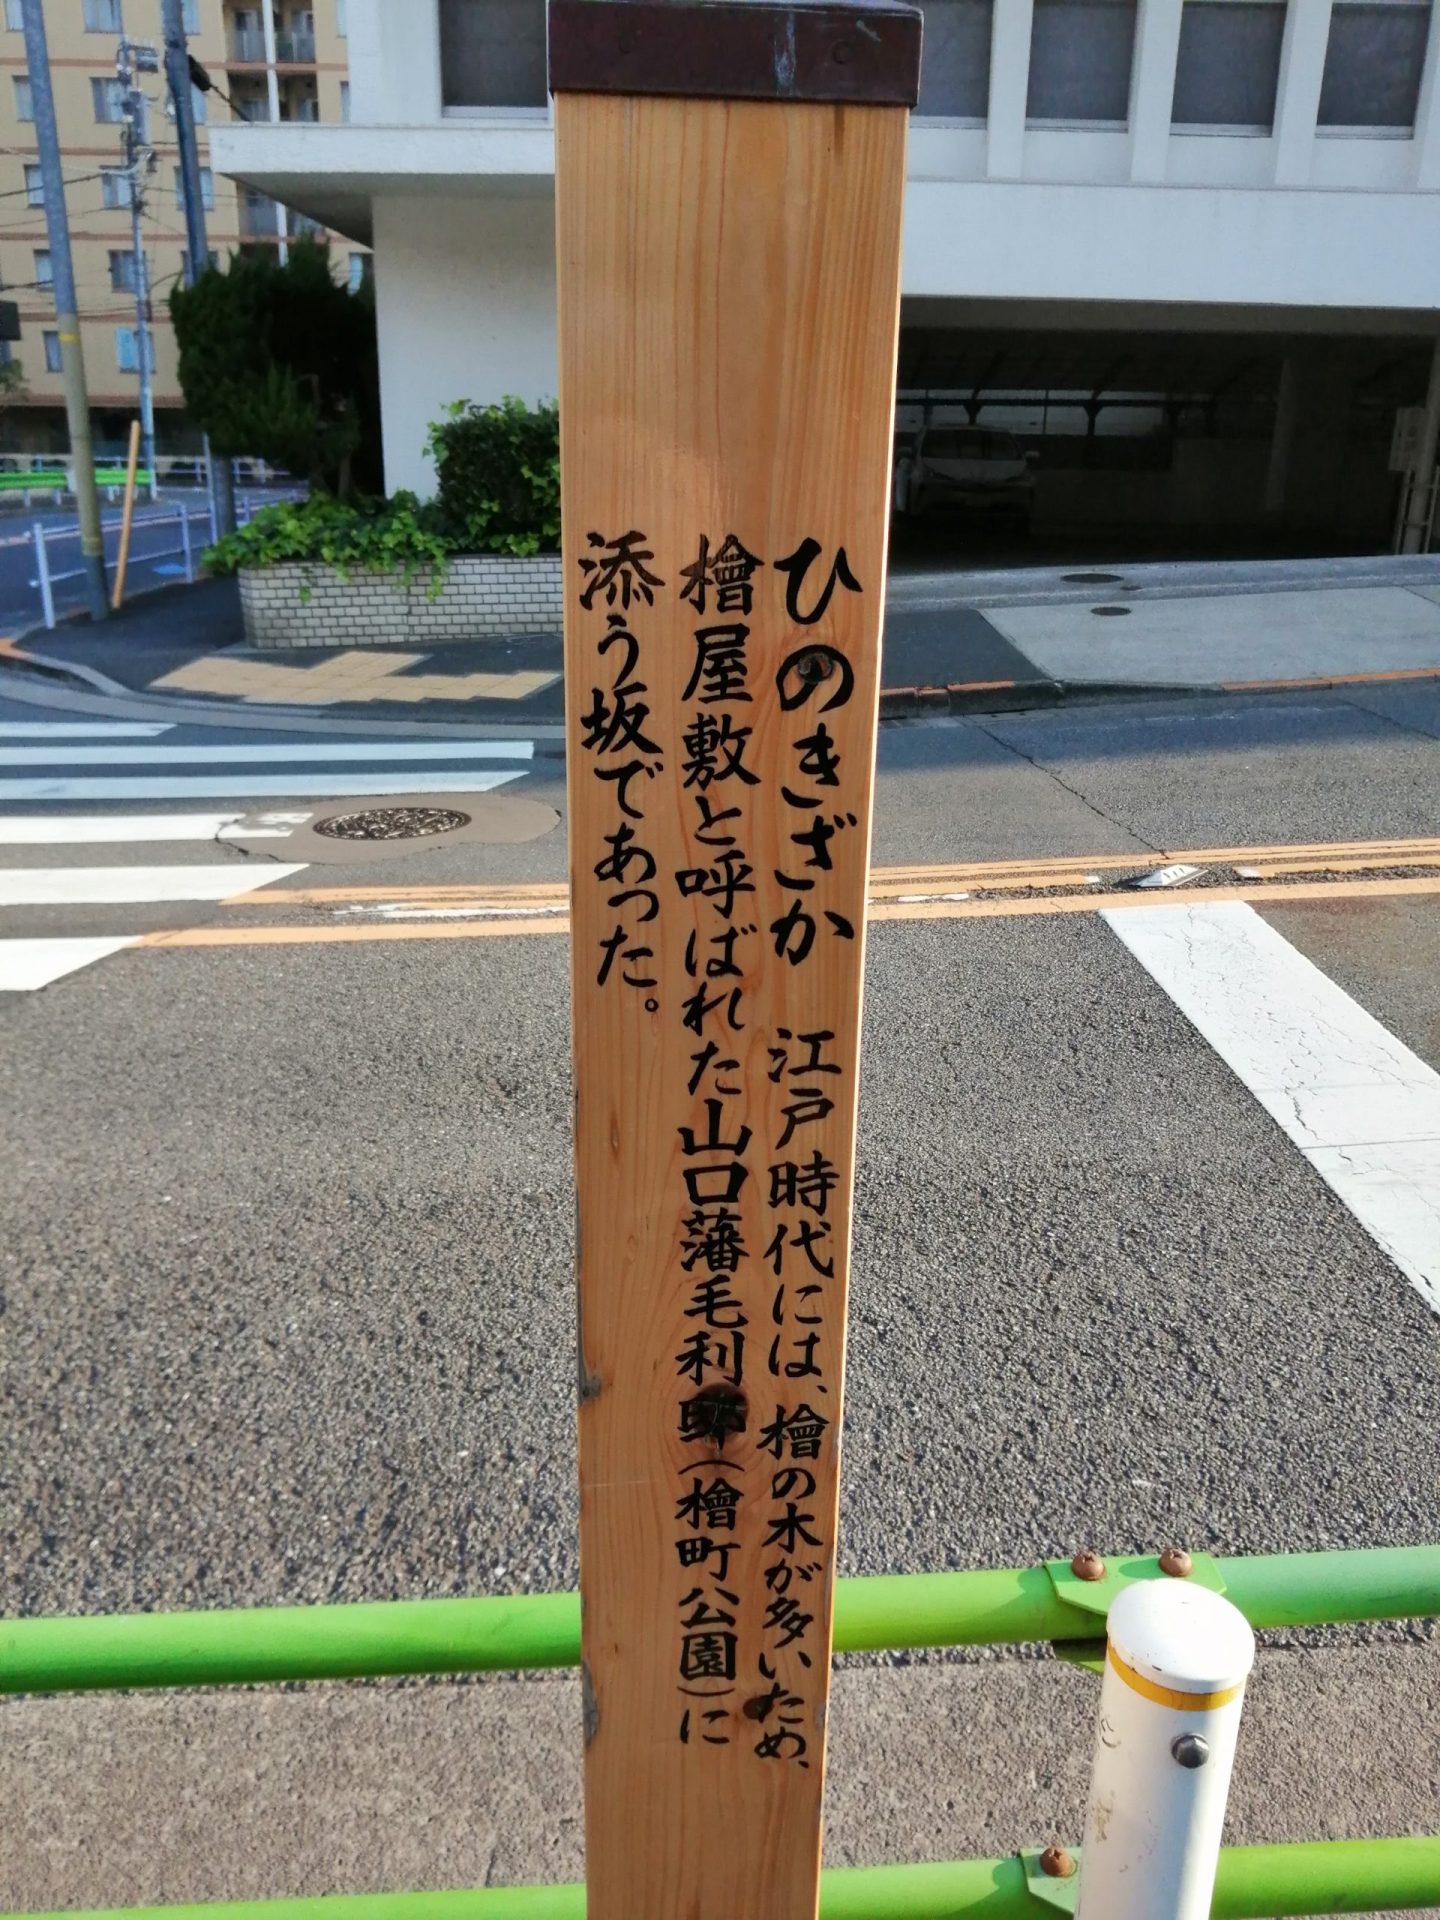 ひのきざか　江戸時代には、檜の木が多いため、
檜屋敷と呼ばれた山口藩毛利邸（檜町公園）に
添う坂であった。